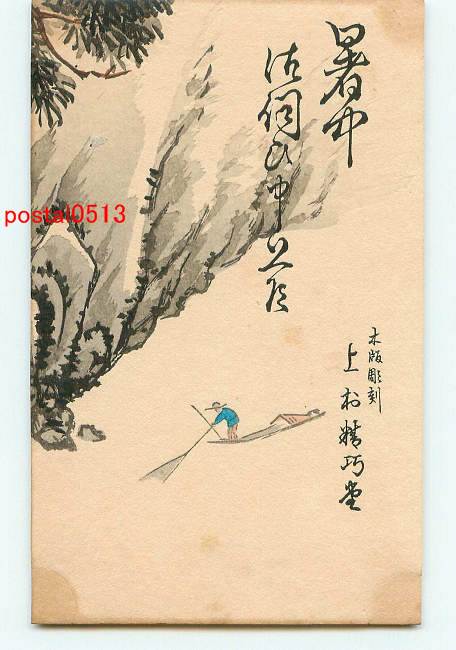 暑中
御伺ひ申上候
木版彫刻
上村精巧堂
postal0513